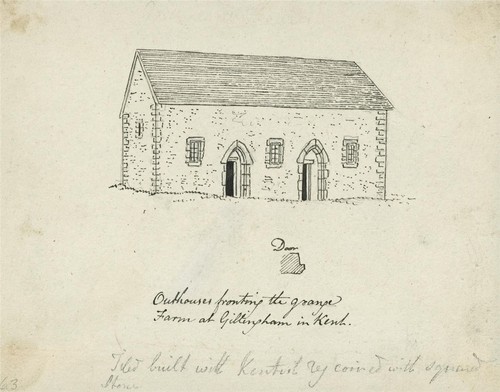 Door
Outhouses fronting the grange
Farm at Gillingham in Kent.
Tiled built with Kentish Rag coined with squared
Stone
63